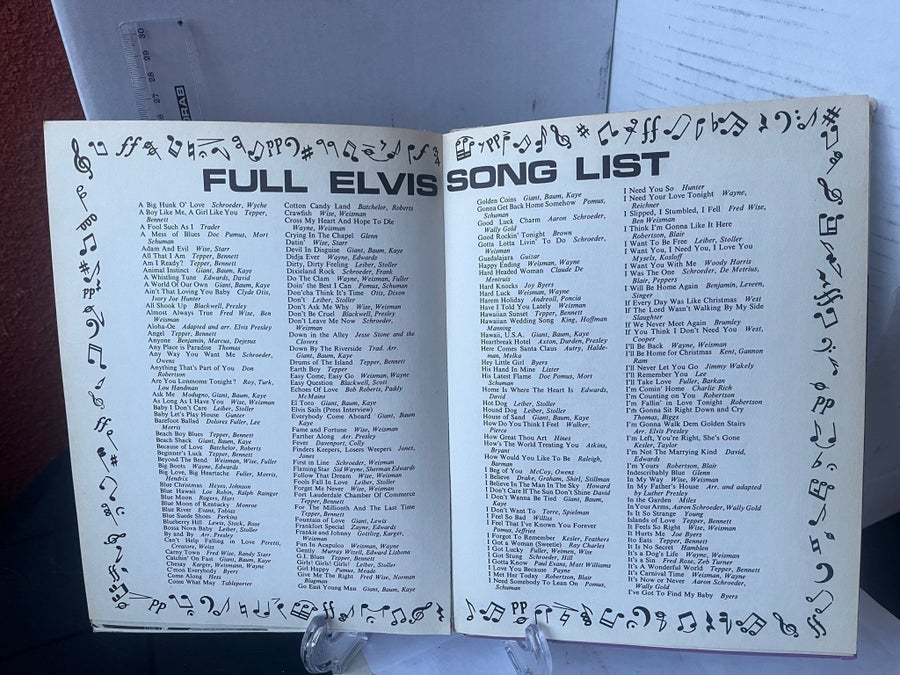 FULL ELVIS SONG LIST
A Big Hunk O' Love Schroeder, Wyche
A Boy Like Me, A Girl Like You Tepper,
Bennett
A Fool Such As I Trader
A Mess of Blues Doc Pomus, Mort
Schuman
Adam And Evil Wise, Starr
All That I Am Tepper, Bennett
Am I Ready? Tepper, Bennett
Animal Instinct Giant, Baum, Kaye
A Whistling Tune Edwards, David
A World Of Our Own Giant, Baum, Kaye
Ain't That Loving You Baby Clyde Otis,
Ivory Joe Hunter
All Shook Up Blackwell, Presley
Almost Always True Fred Wise, Ben
Weisman
Aloha-Oe Adapted and arr. Elvis Presley
Angel Tepper, Bennett
Anyone Benjamin, Marcus, Dejesus
Any Place is Paradise Thomas
Any Way You Want Me Schroeder,
Owens
Anything That's Part of You Don
Robertson
Are You Lonesome Tonight? Roy, Turk,
Lou Handman
Ask Me Modugno, Giant, Baum, Kaye
As Long As I Have You Wise, Weisman
Baby I Don't Care Leiber, Stoller
Baby Let's Play House Gunter
Barefoot Ballad Dolores Fuller, Lee
Morris
Beach Boy Blues Tepper, Bennett
Beach Shack Giant, Baum, Kaye
Because of Love Batchelor, Roberts
Beginner's Luck Tepper, Bennett
Beyond The Bend Weisman, Wise, Fuller
Big Boots Wayne, Edwards
Big Love, Big Heartache Fuller, Morris,
Hendrix
Blue Christmas Heyes, Johnson
Blue Hawaii Leo Robin, Ralph Rainger
Blue Moon Rogers, Hart
Blue Moon of Kentucky Monroe
Blue River Evans, Tobias
Blue Suede Shoes Perkins
Blueberry Hill Lewis, Stock, Rose
Bossa Nova Baby Leiber, Stoller
By and By Arr. Presley
Can't Help Falling in Love Peretti,
Creatore, Weiss
Carny Town Fred Wise, Randy Starr
Catchin' On Fast Giant, Baum, Kaye
Chesay Karger, Weismann, Wayne
C'mon Everybody Byers
Come Along Hess
Come What May Tableporter
Cotton Candy Land Batchelor, Roberts
Crawfish Wise, Weisman
Cross My Heart And Hope To Die
Wayne, Weisman
Crying In The Chapel Glenn
Datin' Wise, Starr
Devil In Disguise Giant, Baum, Kaye
Didja Ever Wayne, Edwards
Dirty, Dirty Feeling Leiber, Stoller
Dixieland Rock Schroeder, Frank
Do The Clam Wayne, Weisman, Fuller
Doin' the Best I Can Pomus, Schuman
Don'cha Think It's Time Otis, Dixon
Don't Leiber, Stoller
Don't Ask Me Why Wise, Weisman
Don't Be Cruel Blackwell, Presley
Don't Leave Me Now Schroeder,
Weisman
Down in the Alley Jesse Stone and the
Clovers
Down By The Riverside Trad. Arr.
Giant, Baum, Kaye
Drums of The Island Tepper, Bennett
Earth Boy Tepper
Easy Come, Easy Go Weisman, Wayne
Easy Question Blackwell, Scott
Echoes Of Love Bob Roberts, Paddy
McMains
El Toro Giant, Baum, Kaye
Elvis Sails (Press Interview)
Everybody Come Aboard Giant, Baum
Kaye
Fame and Fortune Wise, Weisman
Farther Along Arr. Presley
Fever Davenport, Colly
Finders Keepers, Losers Weepers Jones,
Jones
First in Line Schroeder, Weisman
Flaming Star Sid Wayne, Sherman Edwards
Follow That Dream Wise, Weisman
Fools Fall In Love Leiber, Stoller
Forget Me Never Wise, Weisman
Fort Lauderdale Chamber Of Commerce
Tepper, Bennett
For The Millionth And The Last Time
Tepper, Bennett
Fountain of Love Giant, Lewis
Frankfort Special Zayne, Edwards
Frankie and Johnny Gottilog, Karger,
Weisman
Fun In Acapulco Weisman, Wayne
Gently Murray Wizell, Edward Lisbona
G.I. Blues Tepper, Bennett
Girls! Girls! Girls! Leiber, Stoller
Girl Happy Pomus, Meade
Give Me The Right Fred Wise, Norman
Blagman
Go East Young Man Giant, Baum, Kaye
Golden Coins Giant, Baum, Kaye
Gonna Get Back Home Somehow Pomus,
Schuman
Good Luck Charm Aaron Schroeder,
Wally Gold
Good Rockin' Tonight Brown
Gotta Lotta Livin' To Do Schroeder,
Weisman
Guadalajara Guizar
Happy Ending Weisman, Wayne
Hard Headed Woman Claude De
Mentruis
Hard Knocks Joy Byers
Hard Luck Weisman, Wayne
Harem Holiday Andreoli, Poncia
Have I Told You Lately Weisman
Hawaiian Sunset Tepper, Bennett
Hawaiian Wedding Song King, Hoffman
Manning
Hawaii, U.S.A. Giant, Baum, Kaye
Heartbreak Hotel Axton, Durden, Presley
Here Comes Santa Claus Autry, Halde-
man, Melka
Hey Little Girl Byers
His Hand In Mine Lister
His Latest Flame Doc Pomus, Mort
Schuman
Home Is Where The Heart Is Edwards,
David
Hot Dog Leiber, Stoller
Hound Dog Leiber, Stoller
House of Sand Giant, Baum, Kaye
How Do You Think I Feel Walker,
Pierce
How Great Thou Art Hines
How's The World Treating You Atkins,
Bryant
How Would You Like To Be Raleigh,
Barman
I Beg of You McCoy, Owens
I Believe Drake, Graham, Shirl, Stillman
I Believe In The Man In The Sky Howard
I Don't Care If The Sun Don't Shine David
I Don't Wanna Be Tied Giant, Baum,
Kaye
I Don't Want To Torre, Spielman
I Feel So Bad Willis
I Feel That I've Known You Forever
Pomus, Jeffries
I Forgot To Remember Kesler, Feathers
I Got a Woman (Sweetie) Roy Charles
I Got Lucky Fuller, Weiman, Wise
I Got Stung Schroeder, Hill
I Gotta Know Paul Evans, Matt Williams
I Love You Because Payne
I Met Her Today Robertson, Blair
I Need Somebody to Lean On Pomus,
Schuman
I Need You So Hunter
I Need Your Love Tonight Wayne,
Reichner
I Slipped, I Stumbled, I Fell Fred Wise,
Ben Weisman
I Think I'm Gonna Like It Here
Robertson, Blair
I Want To Be Free Leiber, Stoller
I Want You, I Need You, I Love You
Mysels, Kosloff
I Want You With Me Woody Harris
I Was The One Schroeder, De Metrius,
Blair, Peppers
I Will Be Home Again Benjamin, Leveen,
Singer
If Every Day Was Like Christmas West
If The Lord Wasn't Walking By My Side
Slaughter
If We Never Meet Again Brumley
If You Think I Don't Need You West,
Cooper
I'll Be Back Wayne, Weisman
I'll Be Home for Christmas Kent, Gannon
Ram
I'll Never Let You Go Jimmy Wakely
I'll Remember You Lee
I'll Take Love Fuller, Barkan
I'm Comin' Home Charlie Rich
I'm Counting on You Robertson
I'm Fallin' in Love Tonight Robertson
I'm Gonna Sit Right Down and Cry
Thomas, Biggs
I'm Gonna Walk Dem Golden Stairs
Arr. Elvis Presley
I'm Left, You're Right, She's Gone
Kesler, Taylor
I'm Not The Marrying Kind David,
Edwards
I'm Yours Robertson, Blair
Indescribably Blue Glenn
In My Way Wise, Weisman
In My Father's House Arr. and adapted
by Luther Presley
In the Garden Miles
In Your Arms, Aaron Schroeder, Wally Gold
Is It So Strange Young
Islands of Love Tepper, Bennett
It Feels So Right Wise, Weisman
It Hurts Me Joe Byers
Ito Eats Tepper, Bennett
It Is No Secret Hamblen
It's a Dog's Life Wayne, Weisman
It's a Sin Fred Rose, Zeb Turner
It's A Wonderful World Tepper, Bennett
It's Carnival Time Weisman, Wayne
It's Now or Never Aaron Schroeder,
Wally Gold
I've Got To Find My Baby Byers
27 28 29 30